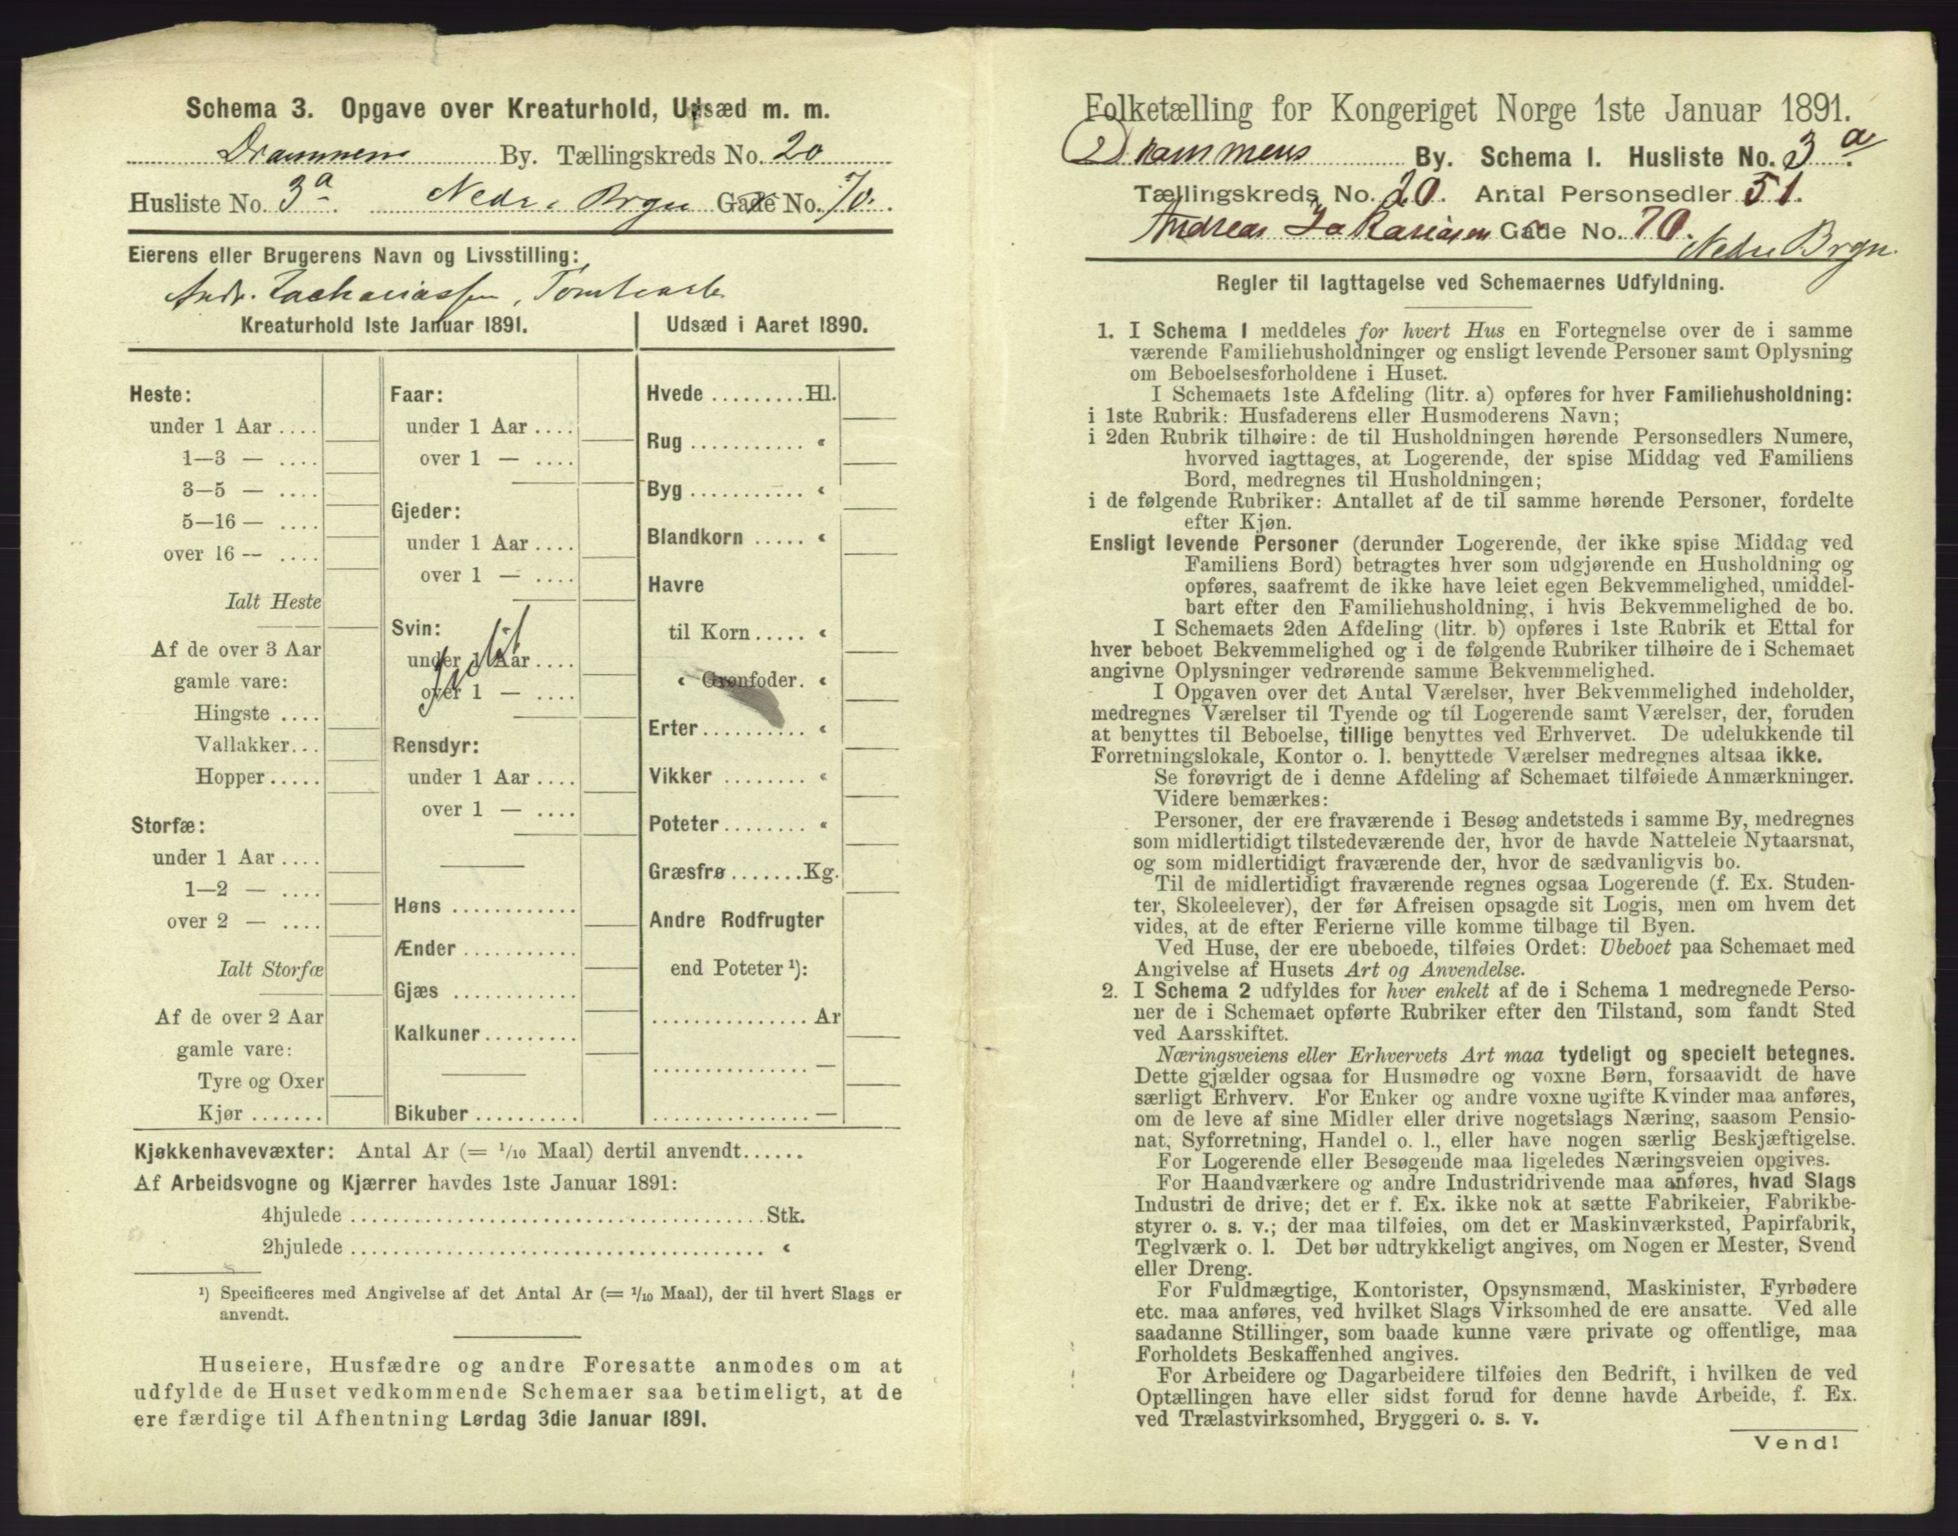 Schema 3. Opgave over Kreaturhold, Udsæd m. m.
Drammens By. Tællingskreds No. 20
Husliste No. 3a. Nedre Brgn Gade No. 70.
Eierens eller Brugerens Navn og Livsstilling:
Andr. Zachariassen,
Kreaturhold 1ste Januar 1891.
Heste:
under 1 Aar ....
1—3 — ....
3—5 — ....
5—16 — ....
over 16 — ....
Ialt Heste
Af de over 3 Aar
gamle vare:
Hingste ....
Vallakker...
Hopper.....
Storfæ:
under 1 Aar ....
1—2 — ....
over 2 — ....
Ialt Storfæ
Af de over 2 Aar
gamle vare:
Tyre og Oxer
Kjør .......
Faar:
under 1 Aar ....
over 1 — ....
Gjeder:
under 1 Aar ....
over 1 — ....
Svin:
under 1 Aar ....
over 1 — ....
Rensdyr:
under 1 Aar ....
over 1 — ....
Høns ............
Ænder ...........
Gjæs ............
Kalkuner.........
Bikuber ..........
Udsæd i Aaret 1890.
Hvede .........Hl.
Rug ........... "
Byg ........... "
Blandkorn ..... "
Havre
til Korn ..... "
" Grønfoder. "
Erter.......... "
Vikker ........ "
Poteter........ "
Græsfrø.......Kg.
Andre Rodfrugter
end Poteter ¹):
............... Ar
............... —
............... —
Kjøkkenhavevæxter: Antal Ar (= 1/10 Maal) dertil anvendt......
Af Arbeidsvogne og Kjærrer havdes 1ste Januar 1891:
4hjulede ........................................Stk.
2hjulede ........................................ "
¹) Specificeres med Angivelse af det Antal Ar (= 1/10 Maal), der til hvert Slags er
anvendt.
Huseiere, Husfædre og andre Foresatte anmodes om at
udfylde de Huset vedkommende Schemaer saa betimeligt, at de
ere færdige til Afhentning Lørdag 3die Januar 1891.
Folketælling for Kongeriget Norge 1ste Januar 1891.
Drammens By. Schema 1. Husliste No. 3 a.
Tællingskreds No. 20. Antal Personsedler 51.
Andreas Zakariasen Gade No. 70.
Nedre Brgn.
Regler til Iagttagelse ved Schemaernes Udfyldning.
1. I Schema 1 meddeles for hvert Hus en Fortegnelse over de i samme
værende Familiehusholdninger og ensligt levende Personer samt Oplysning
om Beboelsesforholdene i Huset.
I Schemaets 1ste Afdeling (litr. a) opføres for hver Familiehusholdning:
i 1ste Rubrik: Husfaderens eller Husmoderens Navn;
i 2den Rubrik tilhøire: de til Husholdningen hørende Personsedlers Numere,
hvorved iagttages, at Logerende, der spise Middag ved Familiens
Bord, medregnes til Husholdningen;
i de følgende Rubriker: Antallet af de til samme hørende Personer, fordelte
efter Kjøn.
Ensligt levende Personer (derunder Logerende, der ikke spise Middag ved
Familiens Bord) betragtes hver som udgjørende en Husholdning og
opføres, saafremt de ikke have leiet egen Bekvemmelighed, umiddel-
bart efter den Familiehusholdning, i hvis Bekvemmelighed de bo.
I Schemaets 2den Afdeling (litr. b) opføres i 1ste Rubrik et Ettal for
hver beboet Bekvemmelighed og i de følgende Rubriker tilhøire de i Schemaet
angivne Oplysninger vedrørende samme Bekvemmelighed.
I Opgaven over det Antal Værelser, hver Bekvemmelighed indeholder,
medregnes Værelser til Tyende og til Logerende samt Værelser, der, foruden
at benyttes til Beboelse, tillige benyttes ved Erhvervet. De udelukkende til
Forretningslokale, Kontor o. l. benyttede Værelser medregnes altsaa ikke.
Se forøvrigt de i denne Afdeling af Schemaet tilføiede Anmærkninger.
Videre bemærkes:
Personer, der ere fraværende i Besøg andetsteds i samme By, medregnes
som midlertidigt tilstedeværende der, hvor de havde Natteleie Nytaarsnat,
og som midlertidigt fraværende der, hvor de sædvanligvis bo.
Til de midlertidigt fraværende regnes ogsaa Logerende (f. Ex. Studen-
ter, Skoleelever), der før Afreisen opsagde sit Logis, men om hvem det
vides, at de efter Ferierne ville komme tilbage til Byen.
Ved Huse, der ere ubeboede, tilføies Ordet: Ubeboet paa Schemaet med
Angivelse af Husets Art og Anvendelse.
2. I Schema 2 udfyldes for hver enkelt af de i Schema 1 medregnede Perso-
ner de i Schemaet opførte Rubriker efter den Tilstand, som fandt Sted
ved Aarsskiftet.
Næringsveiens eller Erhvervets Art maa tydeligt og specielt betegnes.
Dette gjælder ogsaa for Husmødre og voxne Børn, forsaavidt de have
særligt Erhverv. For Enker og andre voxne ugifte Kvinder maa anføres,
om de leve af sine Midler eller drive nogetslags Næring, saasom Pensio-
nat, Syforretning, Handel o. l., eller have nogen særlig Beskjæftigelse.
For Logerende eller Besøgende maa ligeledes Næringsveien opgives.
For Haandværkere og andre Industridrivende maa anføres, hvad Slags
Industri de drive; det er f. Ex. ikke nok at sætte Fabrikeier, Fabrikbe-
styrer o. s. v.; der maa tilføies, om det er Maskinværksted, Papirfabrik,
Teglværk o. l. Det bør udtrykkeligt angives, om Nogen er Mester, Svend
eller Dreng.
For Fuldmægtige, Kontorister, Opsynsmænd, Maskinister, Fyrbødere
etc. maa anføres, ved hvilket Slags Virksomhed de ere ansatte. Ved alle
saadanne Stillinger, som baade kunne være private og offentlige, maa
Forholdets Beskaffenhed angives.
For Arbeidere og Dagarbeidere tilføies den Bedrift, i hvilken de ved
Optællingen have eller sidst forud for denne havde Arbeide, f. Ex.
ved Trælastvirksomhed, Bryggeri o. s. v.
Vend!